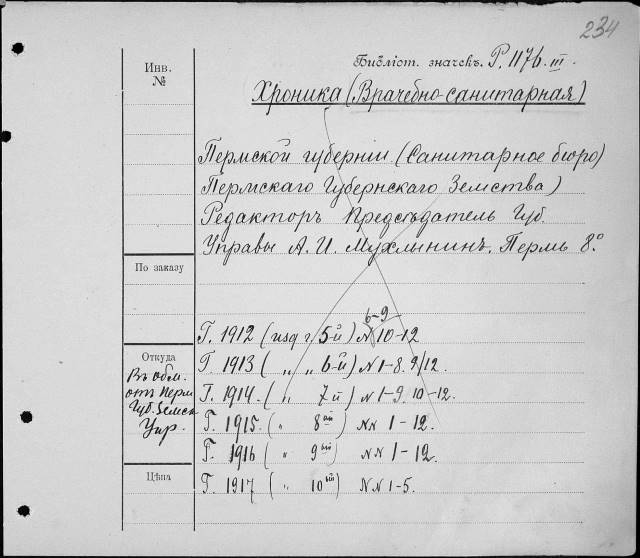 234
Библіот. значекъ. Р. 1176. III.
Инв.
№
Хроника (Врачебно-санитарная)
Пермской губерніи (Санитарное бюро)
Пермскаго Губернскаго Земства)
Редакторъ Предсѣдатель Губ.
Управы А. И. Мухлынинъ. Пермь 8.º
По заказу
6-9
Г. 1912 (изд. г. 5-й) № 10-12
Откуда
Г. 1913 ( „ „ 6-й) № 1-8. 9/12.
Въ обм.
отъ Перм
Губ. Земск
Упр.
Г. 1914. ( „ 7й) № 1-9, 10-12.
Г. 1915. ( „ 8ой) №№ 1-12.
Г. 1916 ( „ 9ый) №№ 1-12.
Цѣна
Г. 1917 ( „ 10ый) №№ 1-5.